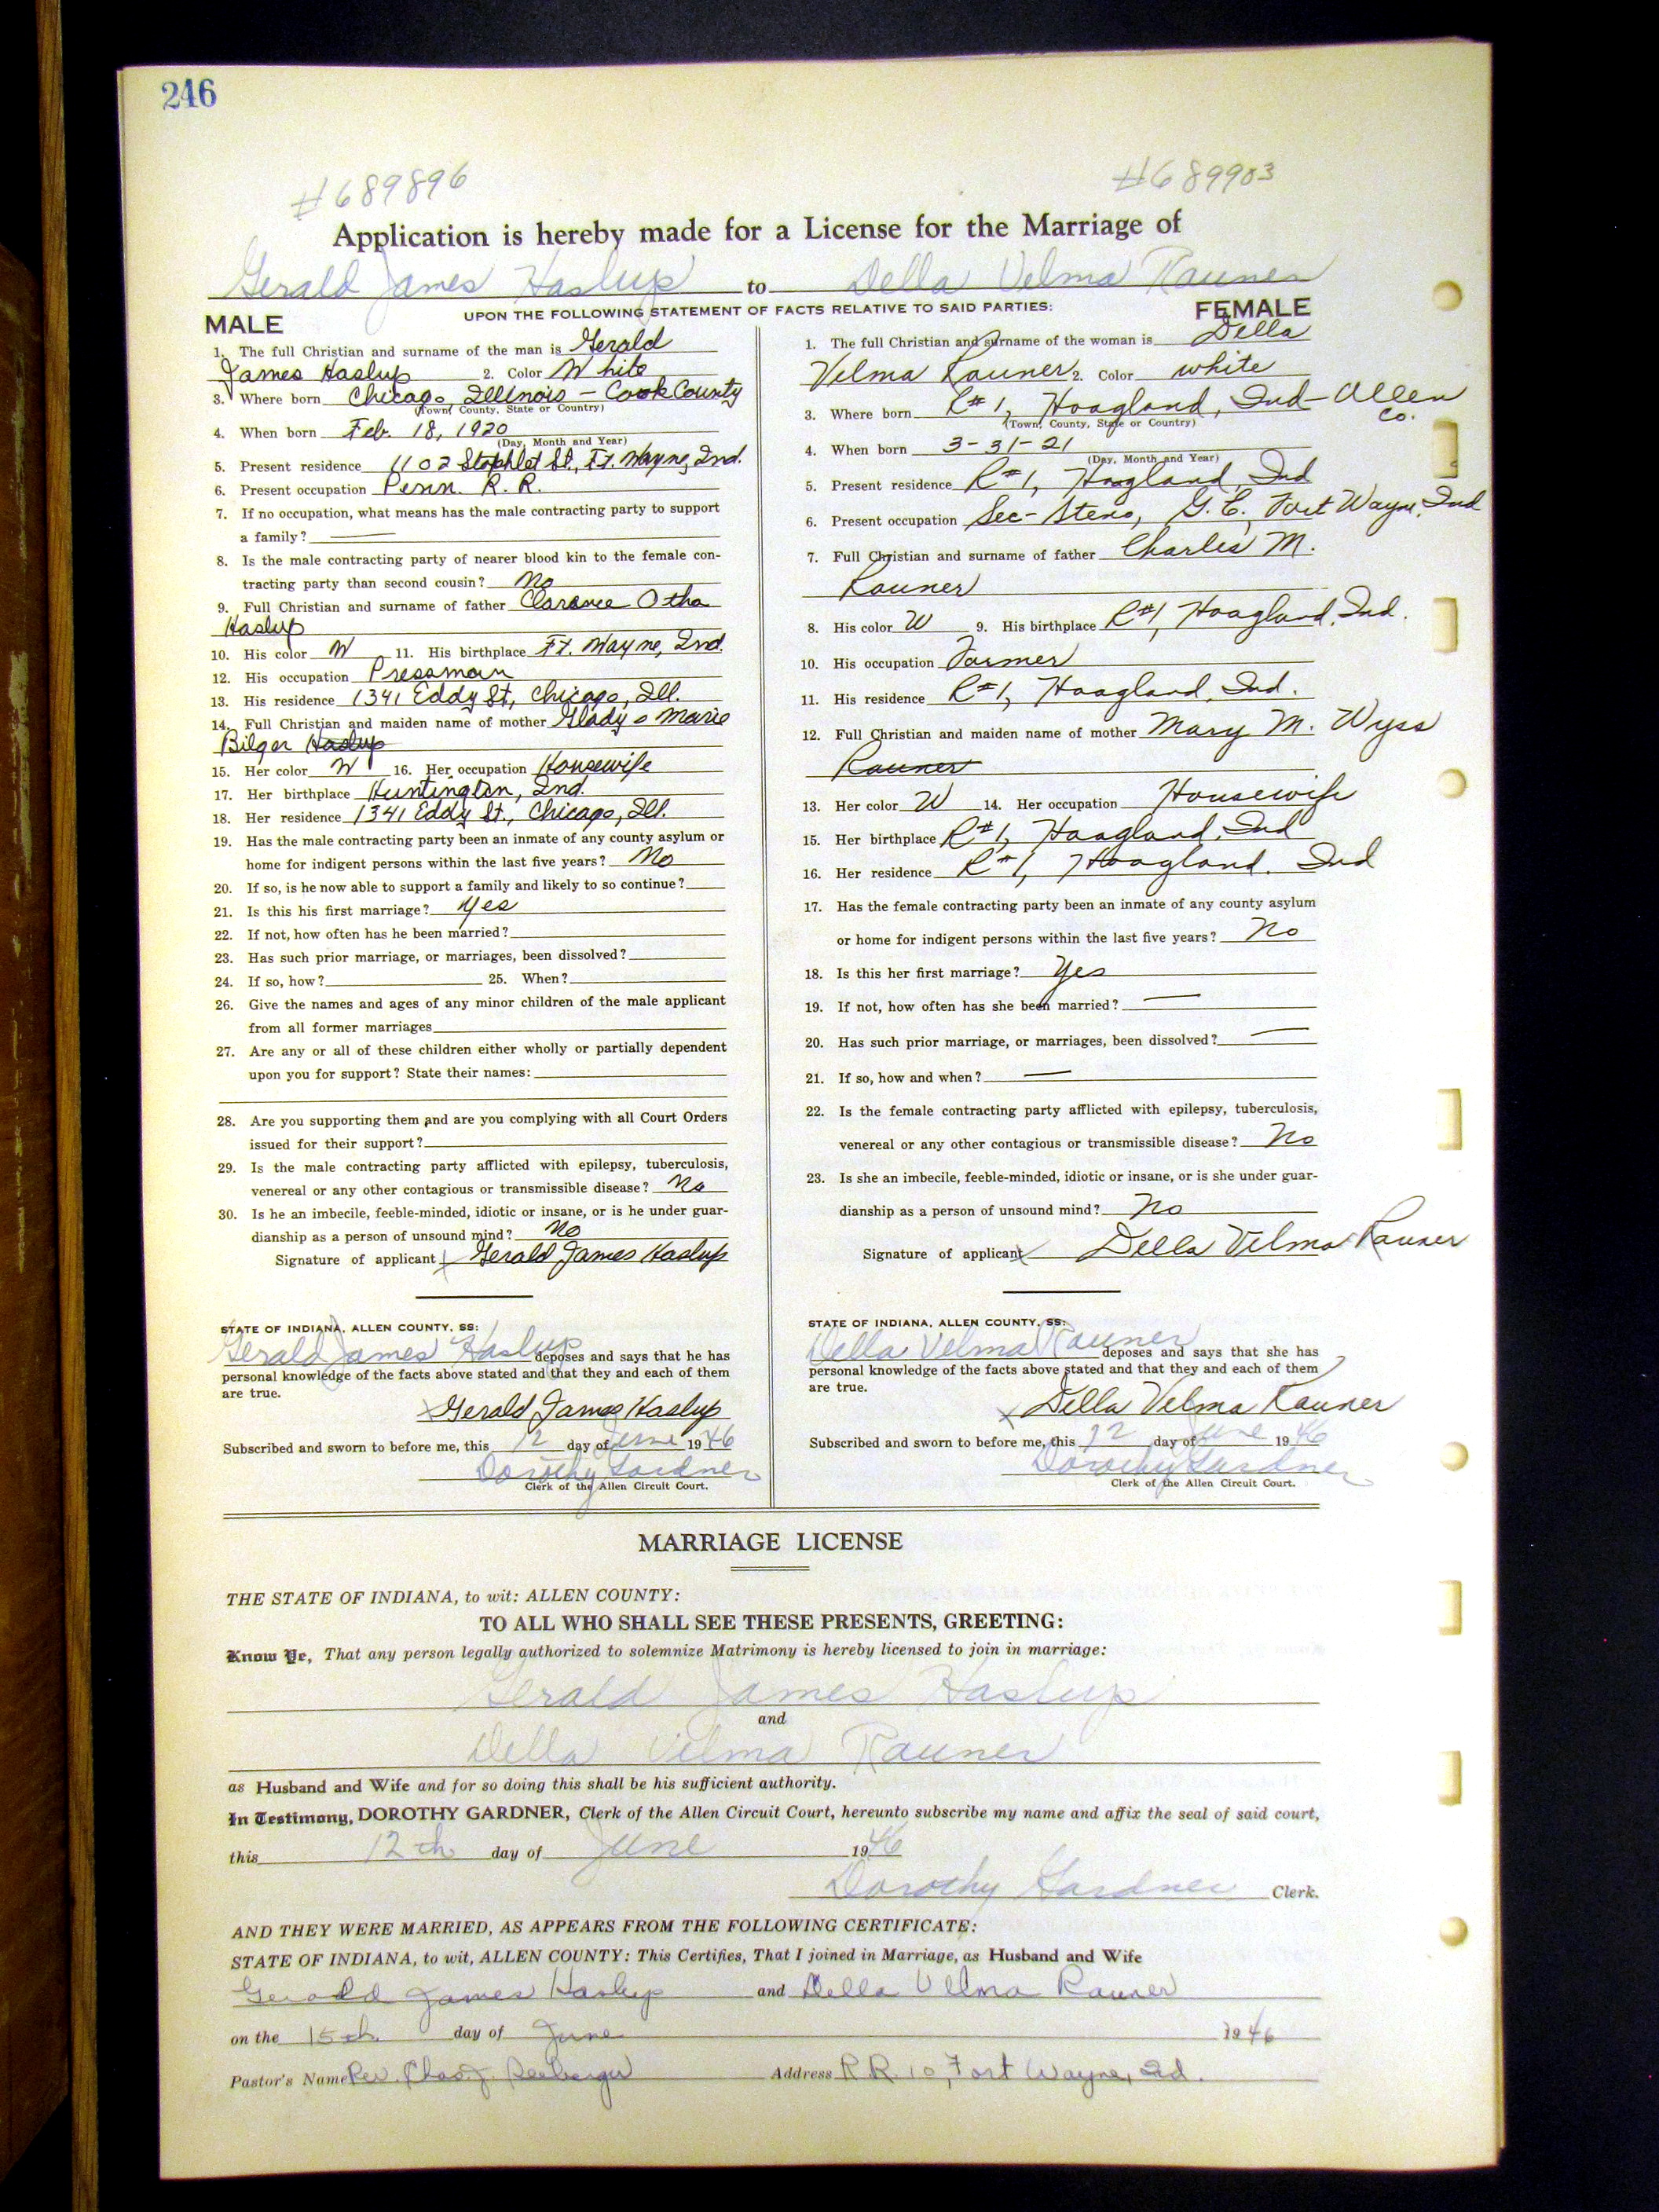 246
#689896 #689903
Application is hereby made for a License for the Marriage of
Gerald James Haslup to Della Velma Rauner
UPON THE FOLLOWING STATEMENT OF FACTS RELATIVE TO SAID PARTIES:
MALE
1. The full Christian and surname of the man is Gerald
James Haslup 2. Color White
3. Where born Chicago, Illinois - Cook County
(Town, County, State or Country)
4. When born Feb. 18, 1920
(Day, Month and Year)
5. Present residence 1102 Stophlet St., Ft. Wayne, Ind.
6. Present occupation Penn. R. R.
7. If no occupation, what means has the male contracting party to support
a family? —
8. Is the male contracting party of nearer blood kin to the female con-
tracting party than second cousin? No
9. Full Christian and surname of father Clarence Otha
Haslup
10. His color W 11. His birthplace Ft. Wayne, Ind.
12. His occupation Pressman
13. His residence 1341 Eddy St., Chicago, Ill.
14. Full Christian and maiden name of mother Gladys Marie
Bilger Haslup
15. Her color W 16. Her occupation Housewife
17. Her birthplace Huntington, Ind.
18. Her residence 1341 Eddy St., Chicago, Ill.
19. Has the male contracting party been an inmate of any county asylum or
home for indigent persons within the last five years? No
20. If so, is he now able to support a family and likely to so continue?
21. Is this his first marriage? Yes
22. If not, how often has he been married?
23. Has such prior marriage, or marriages, been dissolved?
24. If so, how? 25. When?
26. Give the names and ages of any minor children of the male applicant
from all former marriages
27. Are any or all of these children either wholly or partially dependent
upon you for support? State their names:
28. Are you supporting them and are you complying with all Court Orders
issued for their support?
29. Is the male contracting party afflicted with epilepsy, tuberculosis,
venereal or any other contagious or transmissible disease? No
30. Is he an imbecile, feeble-minded, idiotic or insane, or is he under guar-
dianship as a person of unsound mind? No
Signature of applicant x Gerald James Haslup
STATE OF INDIANA, ALLEN COUNTY, SS:
Gerald James Haslup deposes and says that he has
personal knowledge of the facts above stated and that they and each of them
are true.
x Gerald James Haslup
Subscribed and sworn to before me, this 12 day of June 1946
Dorothy Gardner
Clerk of the Allen Circuit Court.
FEMALE
1. The full Christian and surname of the woman is Della
Velma Rauner 2. Color white
3. Where born R#1, Hoagland, Ind - Allen
Co.
(Town, County, State or Country)
4. When born 3-31-21
(Day, Month and Year)
5. Present residence R#1, Hoagland, Ind
6. Present occupation Sec-Steno, G.E. Fort Wayne, Ind
7. Full Christian and surname of father Charles M.
Rauner
8. His color W 9. His birthplace R#1, Hoagland, Ind.
10. His occupation Farmer
11. His residence R#1, Hoagland, Ind.
12. Full Christian and maiden name of mother Mary M. Wyss
Rauner
13. Her color W 14. Her occupation Housewife
15. Her birthplace R#1, Hoagland, Ind
16. Her residence R#1, Hoagland, Ind
17. Has the female contracting party been an inmate of any county asylum
or home for indigent persons within the last five years? No
18. Is this her first marriage? Yes
19. If not, how often has she been married? —
20. Has such prior marriage, or marriages, been dissolved? —
21. If so, how and when? —
22. Is the female contracting party afflicted with epilepsy, tuberculosis,
venereal or any other contagious or transmissible disease? No
23. Is she an imbecile, feeble-minded, idiotic or insane, or is she under guar-
dianship as a person of unsound mind? No
Signature of applicant x Della Velma Rauner
STATE OF INDIANA, ALLEN COUNTY, SS:
Della Velma Rauner deposes and says that she has
personal knowledge of the facts above stated and that they and each of them
are true.
x Della Velma Rauner
Subscribed and sworn to before me, this 12 day of June 1946
Dorothy Gardner
Clerk of the Allen Circuit Court.
MARRIAGE LICENSE
THE STATE OF INDIANA, to wit: ALLEN COUNTY:
TO ALL WHO SHALL SEE THESE PRESENTS, GREETING:
Know Ye, That any person legally authorized to solemnize Matrimony is hereby licensed to join in marriage:
Gerald James Haslup
and
Della Velma Rauner
as Husband and Wife and for so doing this shall be his sufficient authority.
In Testimony, DOROTHY GARDNER, Clerk of the Allen Circuit Court, hereunto subscribe my name and affix the seal of said court,
this 12th day of June 1946
Dorothy Gardner Clerk.
AND THEY WERE MARRIED, AS APPEARS FROM THE FOLLOWING CERTIFICATE:
STATE OF INDIANA, to wit, ALLEN COUNTY: This Certifies, That I joined in Marriage, as Husband and Wife
Gerald James Haslup and Della Velma Rauner
on the 15th day of June 1946
Pastor's Name Rev. Chas. J. Address R.R. 10, Fort Wayne, Ind.